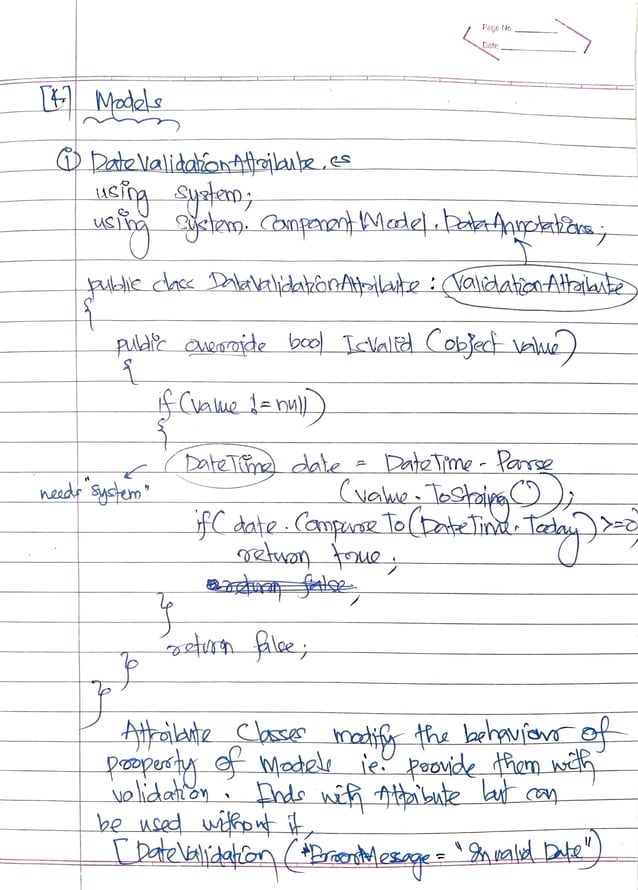 Page No.
Date
[4] Models
(i) DateValidationAttribute.cs
using system;
using system.ComponentModel.DataAnnotations;
public class DataValidationAttribute : ValidationAttribute
{
public override bool IsValid (object value)
{
if (value != null)
{
DateTime date = DateTime.Parse
needs "system" (value.ToString());
if (date.CompareTo(DateTime.Today) >=0)
return true;
return false;
}
return false;
}
}
Attribute Classes modify the behaviour of
property of Models ie. provide them with
validation. Ends with Attribute but can
be used without it,
[DateValidation (ErrorMessage = "Invalid Date")